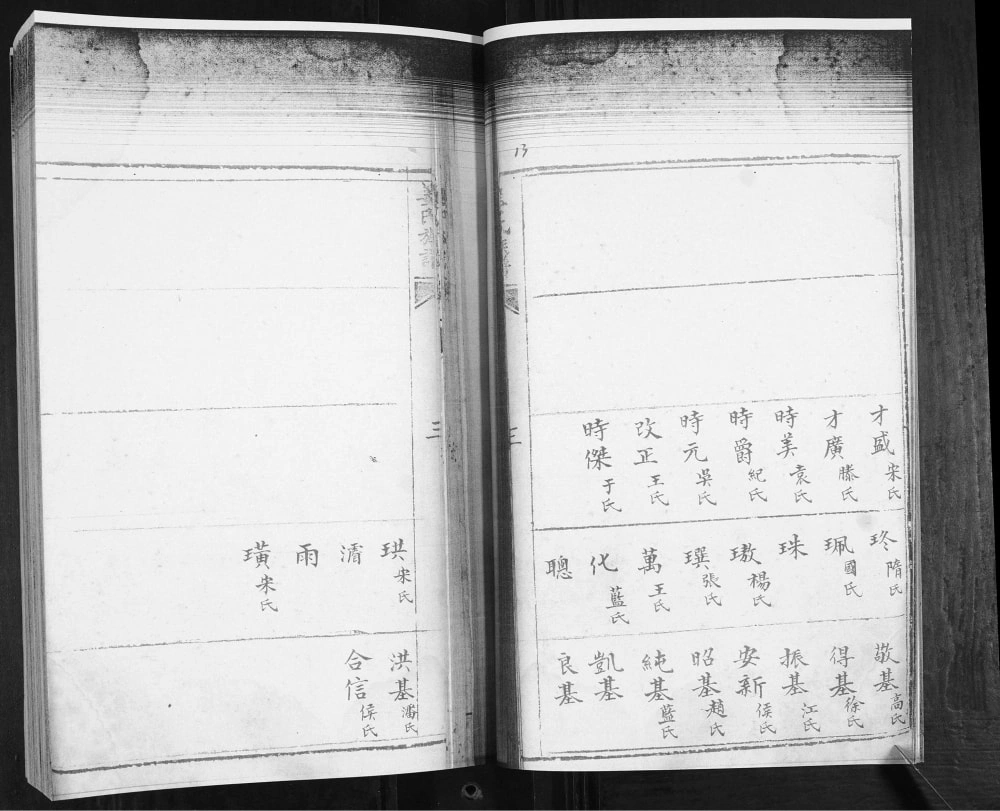 13
才盛 宋氏
才廣 滕氏
時美 袁氏
時爵 紀氏
時元 吳氏
改正 王氏
時傑 于氏
玲 隋氏
珮 國氏
珠
璈 楊氏
璵 張氏
萬 王氏
化 藍氏
聰
敬基 高氏
得基 徐氏
振基 江氏
安新 侯氏
昭基 趙氏
純基 藍氏
凱基
良基
三
姜氏族譜
三
珙 宋氏
濳
雨
璜 宋氏
洪基 潘氏
合信 侯氏